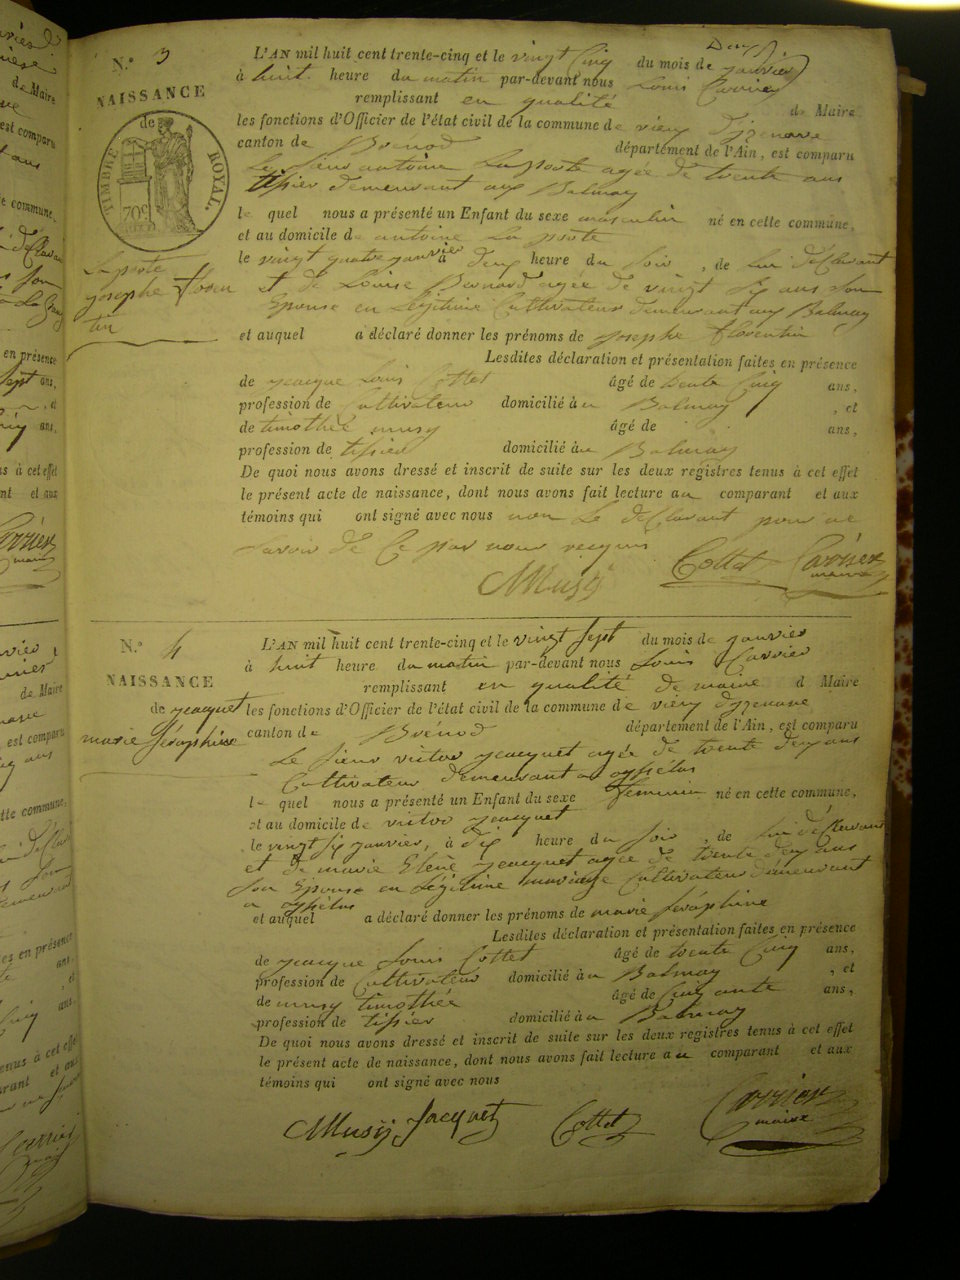 N.° 3
NAISSANCE
de
TIMBRE ROYAL.
70c
Laposte
josephe floren
tin
L'AN mil huit cent trente-cinq et le vingt Cinq du mois de janvier
à huit heure du matin par-devant nous Louis Carrier
remplissant en qualité de Maire
les fonctions d'Officier de l'état civil de la commune de vieux d'izenave
canton de Brenod département de l'Ain, est comparu
Le sieur antoine Laposte agée de trente ans
tissier demeurant aux Balmay
le quel nous a présenté un Enfant du sexe masculin né en cette commune,
et au domicile de antoine La poste
le vingt quatre janvier à deux heure du soir, de lui déClarant
et de Louise Bernard agée de vingt six ans son
Epouse en Légitime Cultivateur demeurant aux Balmay
et auquel a déclaré donner les prénoms de josephe florentin
Lesdites déclaration et présentation faites en présence
de jacque Louis Cottet âgé de trente Cinq ans,
profession de Cultivateur domicilié à u Balmay, et
de timothée musy âgé de ans,
profession de tissier domicilié àu Balmay
De quoi nous avons dressé et inscrit de suite sur les deux registres tenus à cet effet
le présent acte de naissance, dont nous avons fait lecture au comparant et aux
témoins qui ont signé avec nous non Le déClarant pour ne
savoir de Ce par nous requis
Musy Cottet Carrier
maire
N.° 4
NAISSANCE
de jacquet
marie séraphine
L'AN mil huit cent trente-cinq et le vingt sept du mois de janvier
à huit heure du matin par-devant nous Louis Carrier
remplissant en qualité de maire d Maire
les fonctions d'Officier de l'état civil de la commune de vieux d'izenave
canton de Brénod département de l'Ain, est comparu
Le sieur victor jacquet agée de trente deux ans
Cultivateur demeurant a
le quel nous a présenté un Enfant du sexe feminin né en cette commune,
et au domicile de victor jacquet
le vingt six janvier, à dix heure du soir, de lui déClarant
et de marie Elene jacquet agée de trente deux ans
son Epouse en Légitime mariage Cultivateur demeurant
a
et auquel a déclaré donner les prénoms de marie séraphine
Lesdites déclaration et présentation faites en présence
de jacque Louis Cottet âgé de trente Cinq ans,
profession de Cultivateur domicilié à u Balmay, et
de musy timothée âgé de Cinquante ans,
profession de tissier domicilié à u Balmay
De quoi nous avons dressé et inscrit de suite sur les deux registres tenus à cet effet
le présent acte de naissance, dont nous avons fait lecture au comparant et aux
témoins qui ont signé avec nous
Musy Jacquet Cottet Carrier
maire